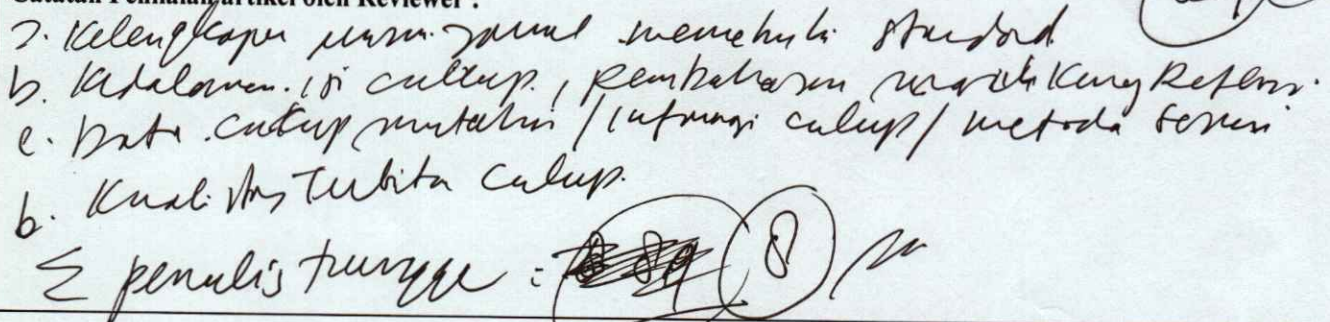 Catatan Penilaian artikel oleh Reviewer :
a. Kelengkapan unsur jurnal memenuhi standard
b. Kedalaman isi cukup, pembahasan masih kurang Referensi
c. Data cukup mutahir / informasi cukup / metoda sesuai
b. Kualitas Terbitan cukup.
Σ penulis tunggal : 8